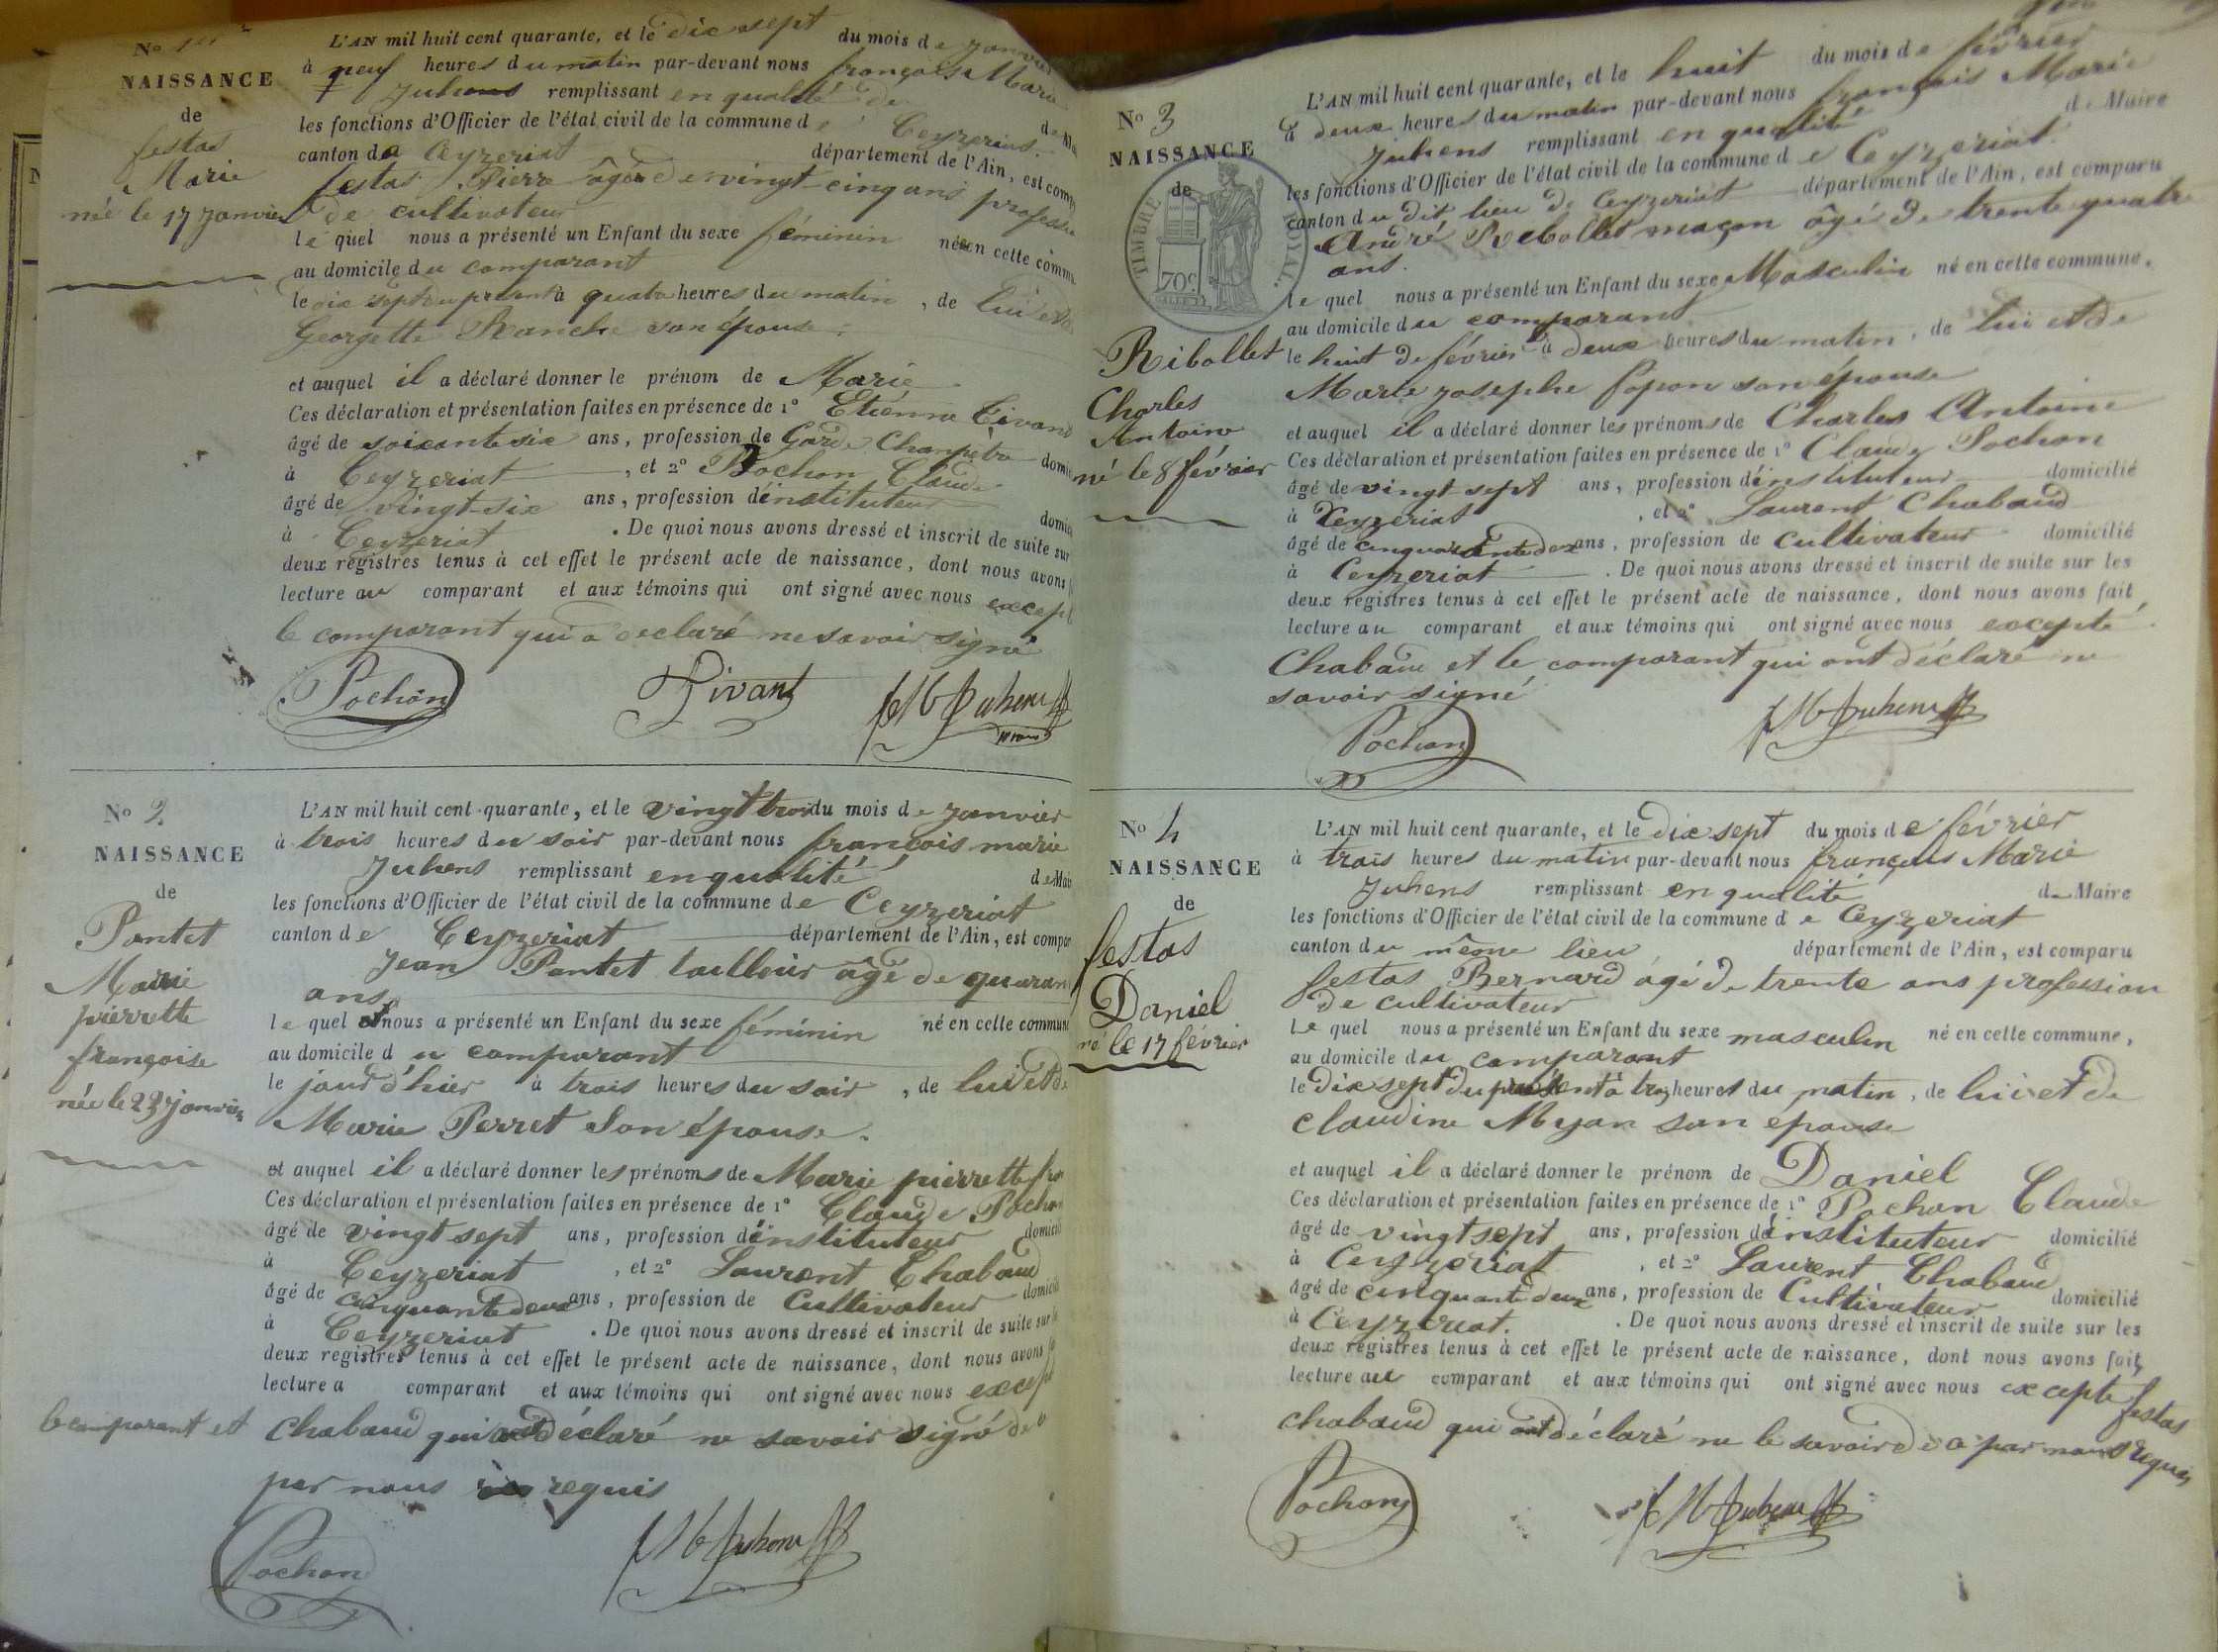 No 1er
NAISSANCE
de
festas
Marie
née le 17 Janvier
L'AN mil huit cent quarante, et le dix sept du mois de Janvier
à neuf heures du matin par-devant nous françois Marie
Juhens remplissant en qualité de
les fonctions d'Officier de l'état civil de la commune de Ceyzeriat
canton de Ceyzeriat département de l'Ain, est comp
festas Pierre âgé de vingt-cinq ans profession
de cultivateur
le quel nous a présenté un Enfant du sexe féminin née en cette commu
au domicile du comparant
le dix sept du présent à quatre heures du matin, de lui et de
Georgette Branche son épouse.
et auquel il a déclaré donner le prénom de Marie
Ces déclaration et présentation faites en présence de 1° Etienne Tivant
âgé de soixante six ans, profession de Garde Champètre domi
à Ceyzeriat, et 2° Pochon Claude
âgé de vingt-six ans, profession d'instituteur domici
à Ceyzeriat. De quoi nous avons dressé et inscrit de suite sur
deux registres tenus à cet effet le présent acte de naissance, dont nous avons f
lecture au comparant et aux témoins qui ont signé avec nous except
le comparant qui a déclaré ne savoir signé
Pochon Tivant fM Juhens
No 2
NAISSANCE
de
Pontet
Marie
pierrette
françoise
née le 23 Janvier
L'AN mil huit cent quarante, et le vingt trois du mois de Janvier
à trois heures du soir par-devant nous françois marie
Juhens remplissant en qualité de Mair
les fonctions d'Officier de l'état civil de la commune de Ceyzeriat
canton de Ceyzeriat département de l'Ain, est compar
Jean Pontet tailleur âgé de quaran
ans
le quel nous a présenté un Enfant du sexe féminin né en cette commune
au domicile du comparant
le jour d'hier à trois heures du soir, de lui et de
Marie Perret Son épouse.
et auquel il a déclaré donner les prénoms de Marie pierrette fran
Ces déclaration et présentation faites en présence de 1° Claude Pochon
âgé de vingt sept ans, profession d'instituteur domicili
à Ceyzeriat, et 2° Laurent Chaband
âgé de cinquante deux ans, profession de Cultivateur domicili
à Ceyzeriat. De quoi nous avons dressé et inscrit de suite sur le
deux registres tenus à cet effet le présent acte de naissance, dont nous avons fa
lecture a comparant et aux témoins qui ont signé avec nous except
le comparant et Chaband qui ont déclaré ne savoir signé de
par nous requis
Pochon fM Juhens
No 3
NAISSANCE
de
TIMBRE ROYAL
70c
Ribollet
Charles
Antoine
né le 8 février
L'AN mil huit cent quarante, et le huit du mois de février
à deux heures du matin par-devant nous françois Marie
Juhens remplissant en qualité de Maire
les fonctions d'Officier de l'état civil de la commune de Ceyzeriat
canton du dit lieu de Ceyzeriat département de l'Ain, est comparu
André Rebollet maçon âgé de trente quatre
ans.
le quel nous a présenté un Enfant du sexe Masculin né en cette commune,
au domicile du comparant
le huit de février à deux heures du matin, de lui et de
Marie Josephe Popon son épouse
et auquel il a déclaré donner les prénoms de Charles Antoine
Ces déclaration et présentation faites en présence de 1° Claude Pochon
âgé de vingt sept ans, profession d'instituteur domicilié
à Ceyzeriat, et 2° Laurent Chaband
âgé de cinquante deux ans, profession de cultivateur domicilié
à Ceyzeriat. De quoi nous avons dressé et inscrit de suite sur les
deux registres tenus à cet effet le présent acte de naissance, dont nous avons fait
lecture au comparant et aux témoins qui ont signé avec nous excepté
Chaband et le comparant qui ont déclaré ne
savoir signé
Pochon fM Juhens
No 4
NAISSANCE
de
festas
Daniel
né le 17 février
L'AN mil huit cent quarante, et le dix sept du mois de février
à trois heures du matin par-devant nous françois Marie
Juhens remplissant en qualité de Maire
les fonctions d'Officier de l'état civil de la commune de Ceyzeriat
canton du même lieu département de l'Ain, est comparu
festas Bernard âgé de trente ans profession
de cultivateur
Le quel nous a présenté un Enfant du sexe masculin né en cette commune,
au domicile du comparant
le dix sept du présent à trois heures du matin, de lui et de
claudine Myan son épouse
et auquel il a déclaré donner le prénom de Daniel
Ces déclaration et présentation faites en présence de 1° Pochon Claude
âgé de vingt sept ans, profession d'instituteur domicilié
à Ceyzeriat, et 2° Laurent Chaband
âgé de cinquante deux ans, profession de Cultivateur domicilié
à Ceyzeriat. De quoi nous avons dressé et inscrit de suite sur les
deux registres tenus à cet effet le présent acte de naissance, dont nous avons fait
lecture au comparant et aux témoins qui ont signé avec nous excepte festas
chaband qui ont déclaré ne le savoir de ce par nous requis
Pochon fM Juhens